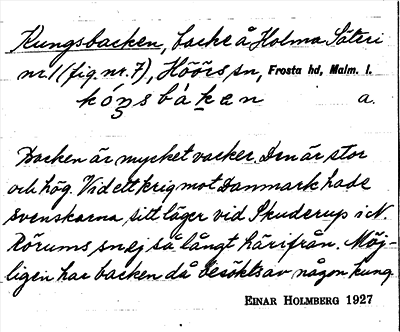 Kungsbacken, backe å Holma Säteri
nr. 1 (fig. nr. 7), Höörs sn, Frosta hd, Malm. l.
kóŋsbáken a.
Backen är mycket vacker. Den är stor
och hög. Vid ett krig mot Danmark hade
svenskarna sitt läger vid Skuderup i N.
Rörums sn ej så långt härifrån. Möj-
ligen har backen då besökts av någon kung
EINAR HOLMBERG 1927